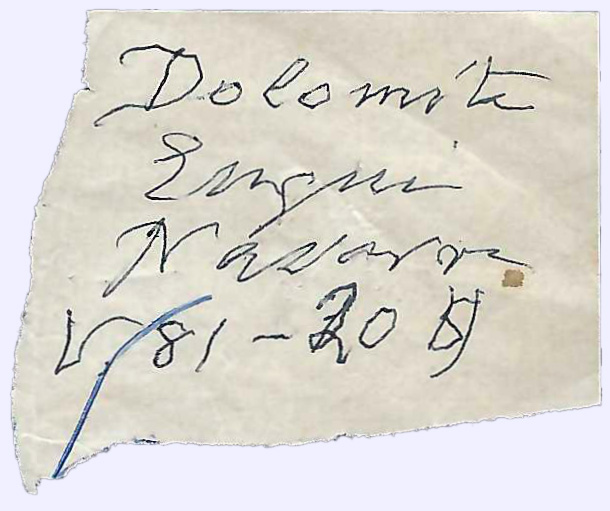 Dolomita
Eugui
Navarra
V 81-20